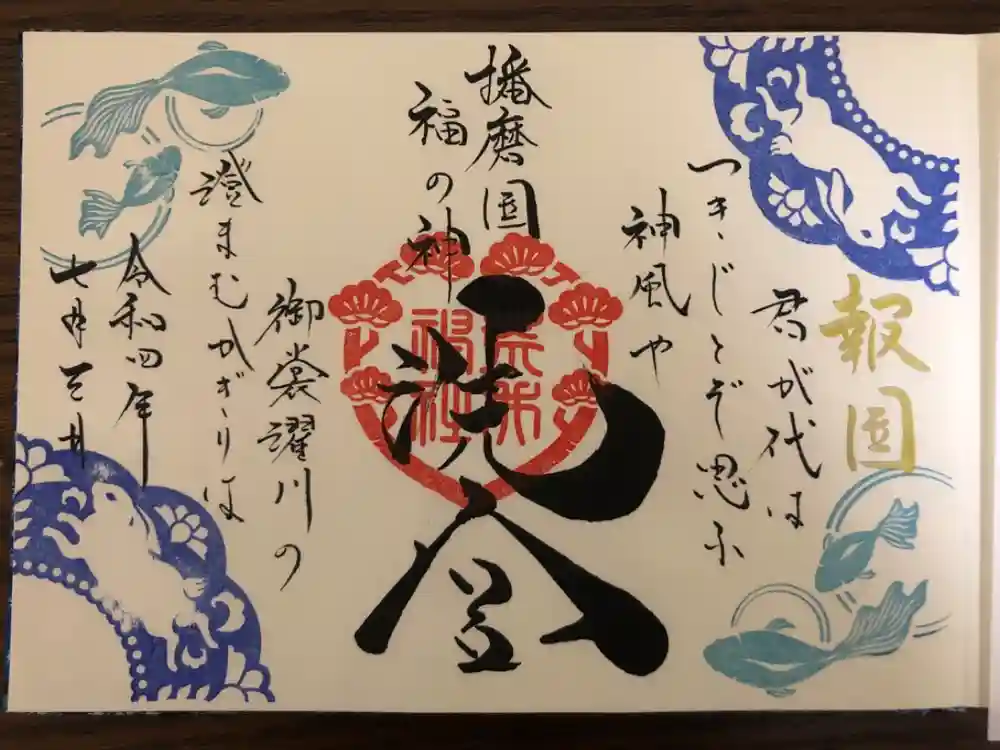 報国
君が代は
つきじとぞ思ふ
神風や
播磨国
福の神
荒井
神社
御裳濯川の
澄まむかぎりは
令和四年
七月三日